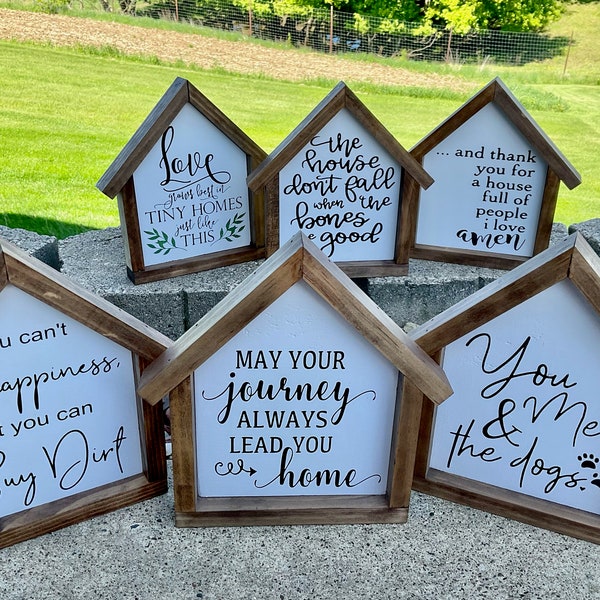 Love
grows best in
TINY HOMES
just like
THIS
the
house
dont fall
when the
bones
good
... and thank
you for
a house
full of
people
i love
amen
can't
happiness,
you can
Buy Dirt
MAY YOUR
journey
ALWAYS
LEAD YOU
home
You
& Me
the dogs.